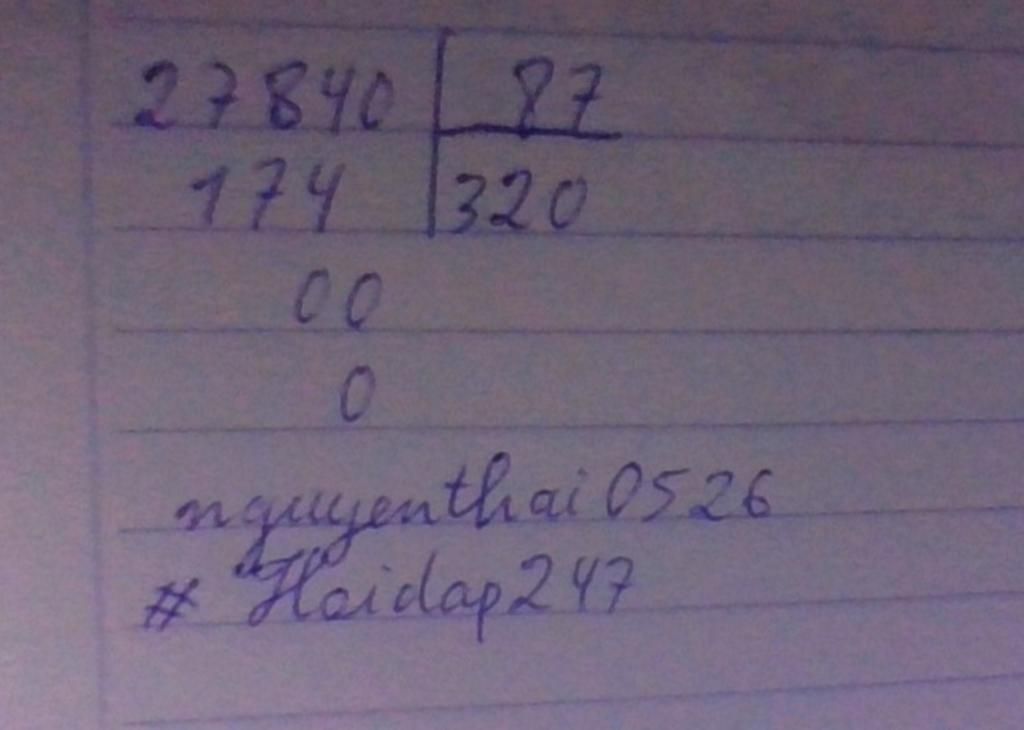 27840 87
174 320
00
0
nguyenthai0526
# Hoidap247